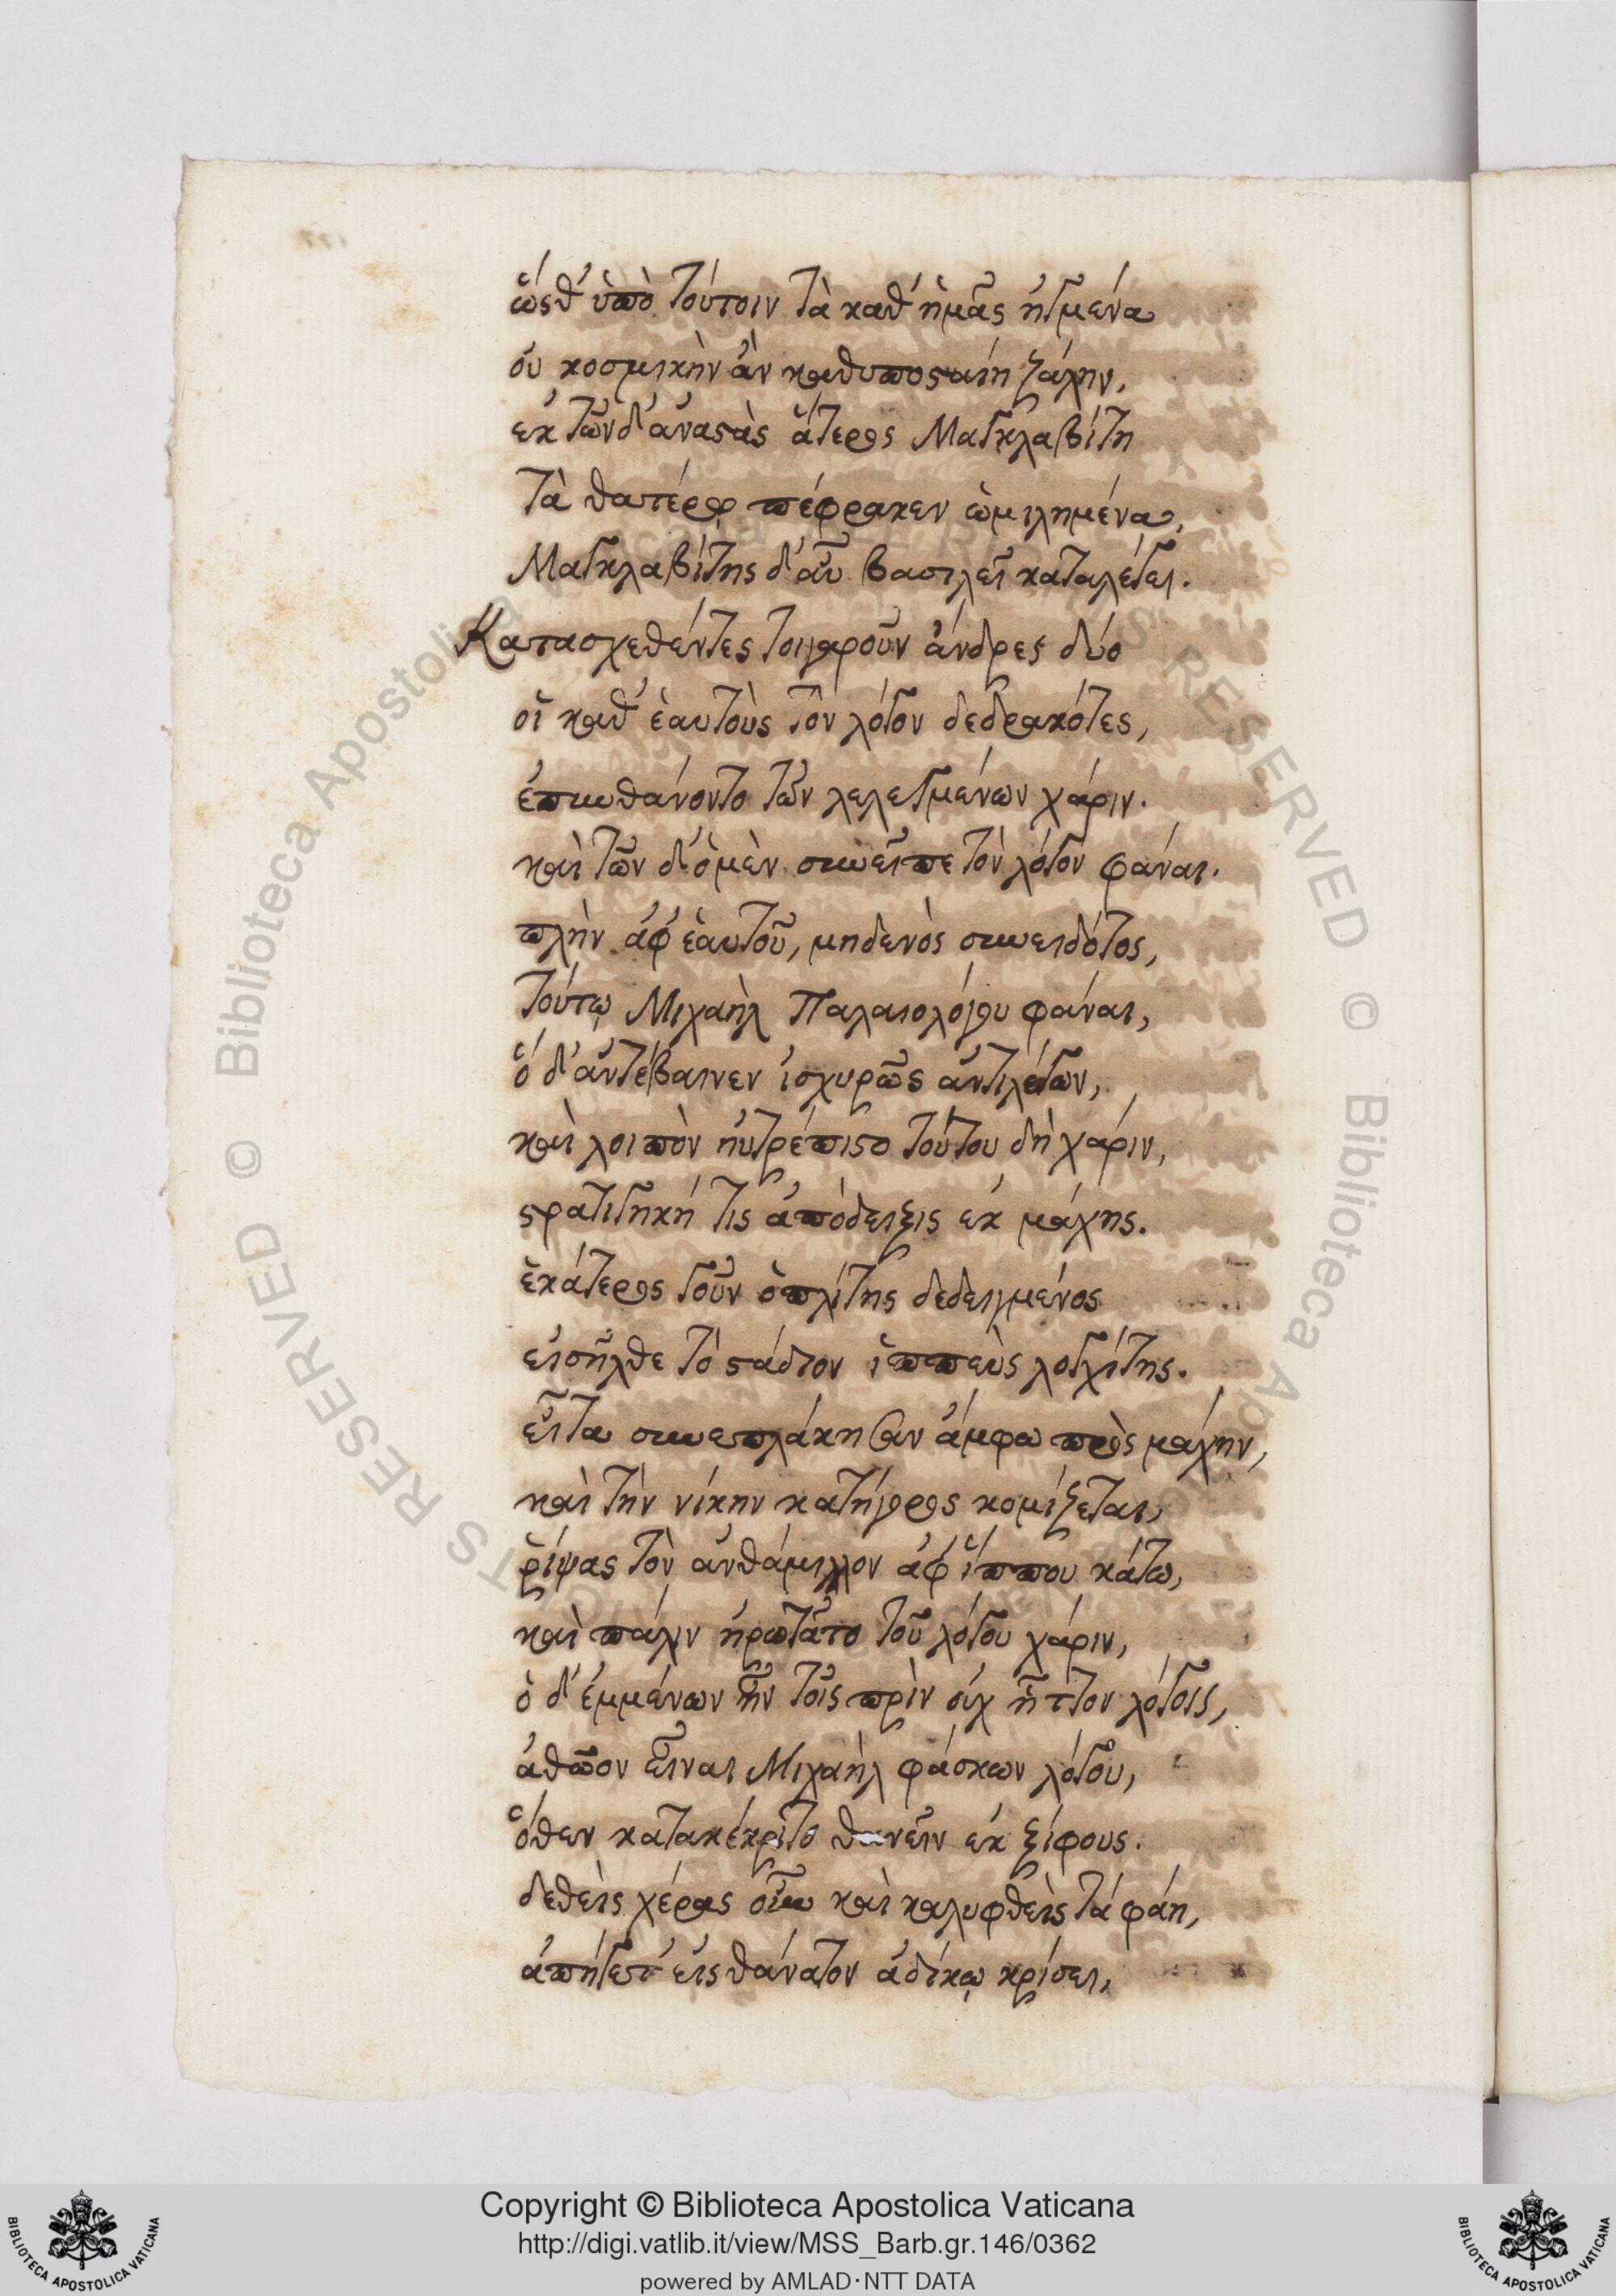 ὥςθ' ὑπὸ τούτοιν τὰ καθ' ἡμᾶς ἠγμένα
οὐ κοσμικὴν ἂν καθυποσταίη ζάλην,
ἐκ τῶν δ' ἀναστὰς ἅτερος Μαγκλαβίτῃ
τὰ θατέρῳ πέφρακεν ὡμιλημένα,
Μαγκλαβίτης δ' αὖ βασιλεῖ καταλέγει.
Κατασχεθέντες τοιγαροῦν ἄνδρες δύο
οἳ καθ' ἑαυτοὺς τὸν λόγον δεδρακότες,
ἐπυνθάνοντο τῶν λελεγμένων χάριν.
καὶ τῶν δ' ὁ μὲν συνεῖπε τὸν λόγον φάναι.
πλὴν ἀφ' ἑαυτοῦ, μηδενὸς συνειδότος,
τούτῳ Μιχαὴλ Παλαιολόγου φάναι,
ὁ δ' ἀντέβαινεν ἰσχυρῶς ἀντιλέγων,
καὶ λοιπὸν ηὐτρέπιστο τούτου δὴ χάριν,
στρατιγηκή τις ἀπόδειξις ἐκ μάχης.
ἑκάτερος γοῦν ὁπλίτης δεδειγμένος
εἰσῆλθε τὸ στάδιον ἱππεὺς λογχίτης.
εἶτα συνεπλάκησαν ἄμφω πρὸς μάχην,
καὶ τὴν νίκην κατήγορος κομίζεται,
ῥίψας τὸν ἀνθάμιλλον ἀφ' ἵππου κάτω,
καὶ πάλιν ἠρωτᾶτο τοῦ λόγου χάριν,
ὁ δ' ἐμμένων ἦν τοῖς πρὶν οὐχ ἧττον λόγοις,
ἀθῶον εἶναι Μιχαὴλ φάσκων λόγου,
ὅθεν κατακέκριτο θανεῖν ἐκ ξίφους.
δεθεὶς χέρας οὖν καὶ καλυφθεὶς τὰ φάη,
ἀπήγετ' εἰς θάνατον ἀδίκῳ κρίσει,
Copyright © Biblioteca Apostolica Vaticana
http://digi.vatlib.it/view/MSS_Barb.gr.146/0362
powered by AMLAD·NTT DATA